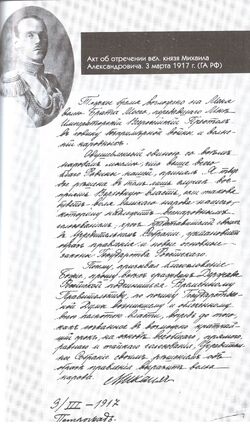 Акт об отречении вел. князя Михаила
Александровича. 3 марта 1917 г. (ГА РФ)
Тяжкое бремя возложено на Меня
волею Брата Моего, передавшего Мне
Императорский Всероссийский Престол
в годину беспримерной войны и волне-
ній народныхъ.
Одушевленный единою со всѣмъ
народомъ мыслію, что выше всего
благо Родины нашей, принялъ Я твер-
дое рѣшеніе въ томъ лишь случаѣ вос-
принять Верховную власть, если такова
будетъ воля великаго народа нашего,
которому надлежитъ всенароднымъ
голосованіемъ, чрезъ представителей своихъ
въ Учредительномъ Собраніи, установить
образъ правленія и новые основные
законы Государства Россійскаго.
Посему, призывая благословеніе
Божіе, прошу всѣхъ гражданъ Державы
Россійской подчиниться Временному
Правительству, по почину Государствен-
ной Думы возникшему и облеченно-
му всею полнотою власти, впредь до того,
какъ созванное въ возможно кратчай-
шій срокъ, на основѣ всеобщаго, прямого,
равнаго и тайнаго голосованія, Учредитель-
ное Собраніе своимъ рѣшеніемъ объ
образѣ правленія выразитъ волю
народа.
Михаилъ
3/III - 1917
Петроградъ.